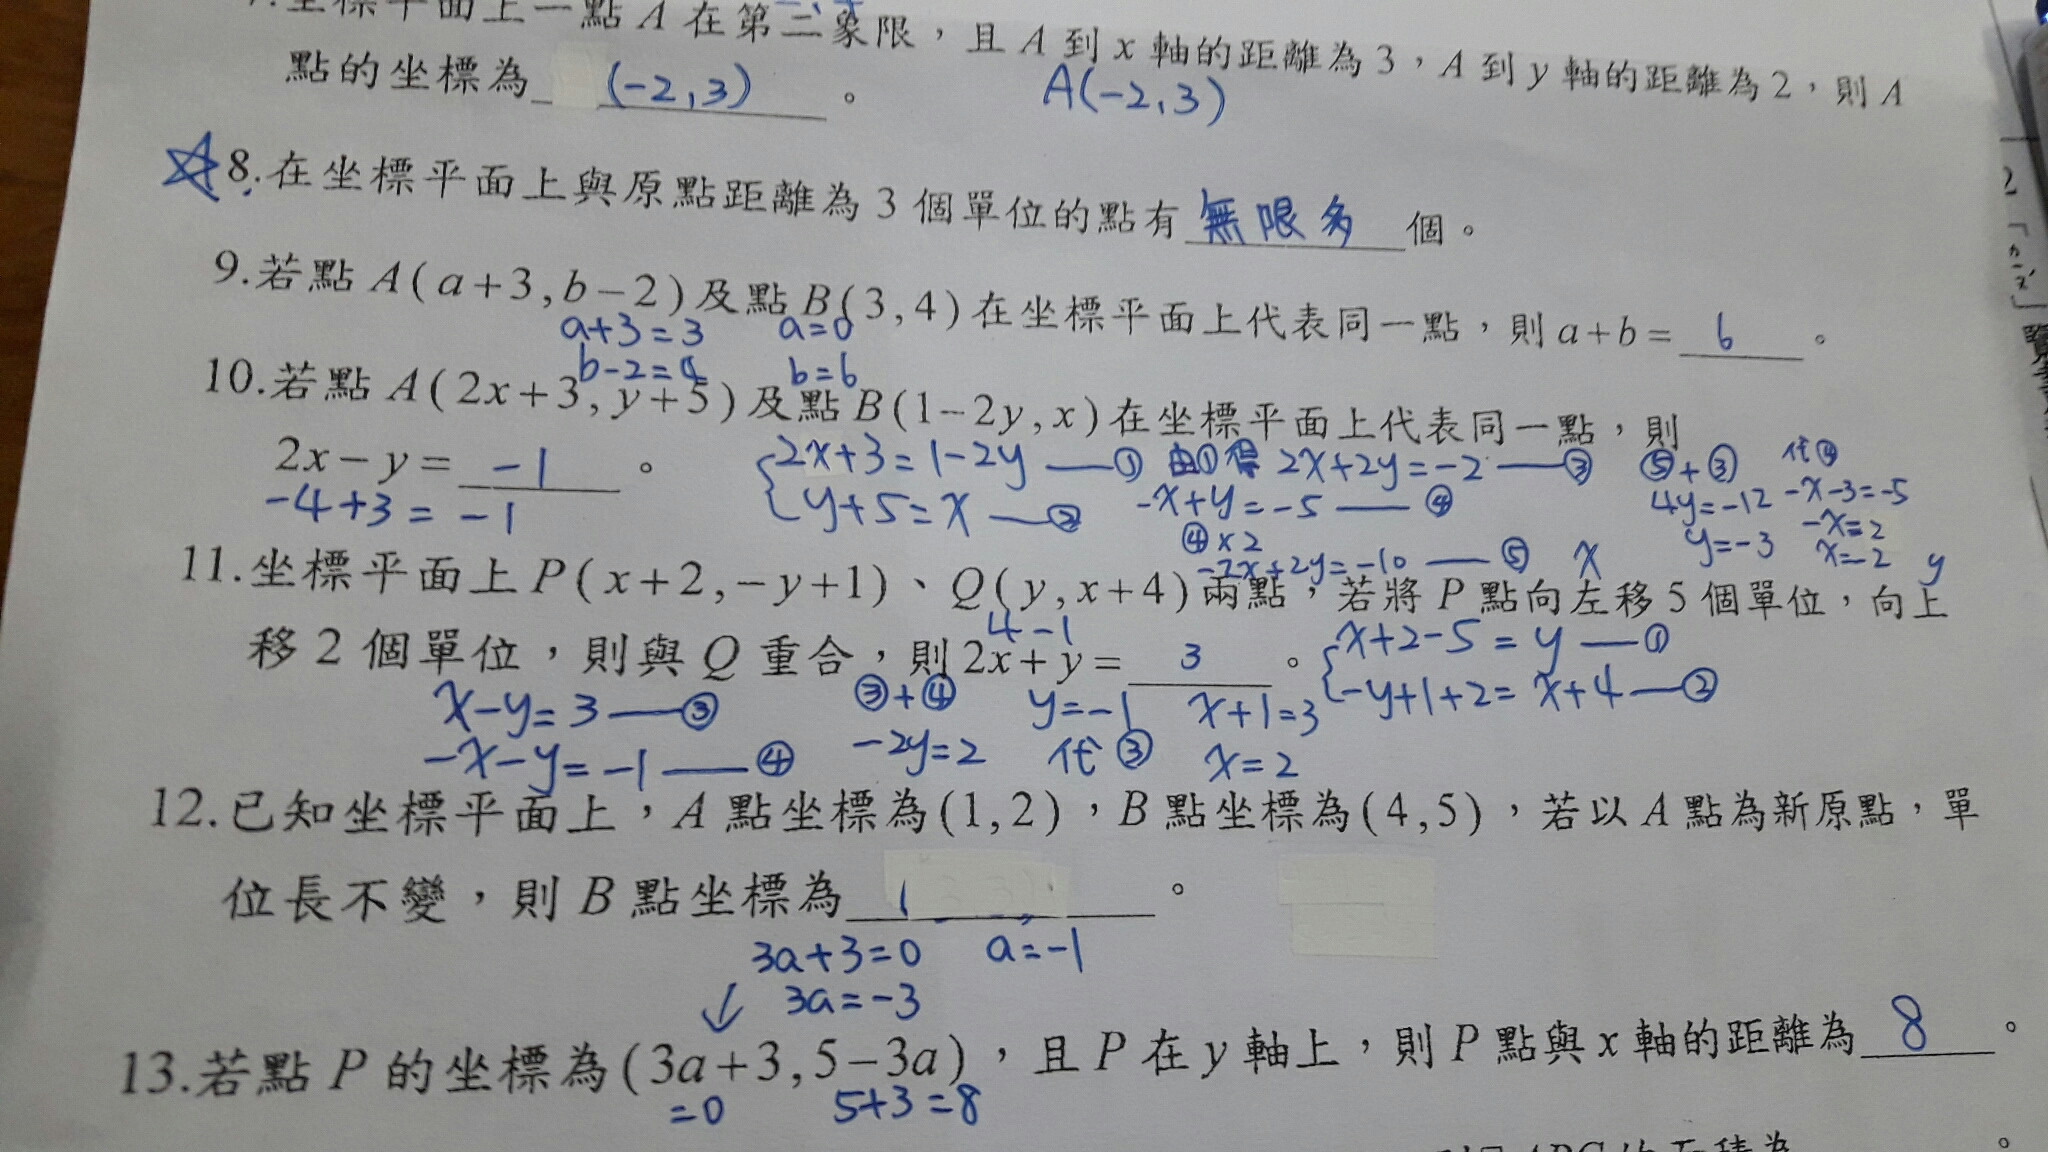 7.坐標平面上一點 A 在第二象限，且 A 到 x 軸的距離為 3，A 到 y 軸的距離為 2，則 A
點的坐標為 (-2,3) 。 A(-2,3)
☆8.在坐標平面上與原點距離為 3 個單位的點有 無限多 個。
9.若點 A(a+3,b-2)及點 B(3,4)在坐標平面上代表同一點，則 a+b= 6 。
a+3=3 a=0
b-2=4 b=6
10.若點 A(2x+3,y+5)及點 B(1-2y,x)在坐標平面上代表同一點，則
2x-y= -1 。 2x+3=1-2y —① 由①得 2x+2y=-2 —③ ⑤+③ 代④
-4+3=-1 y+5=x —② -x+y=-5 —④ 4y=-12 -x-3=-5
④×2 y=-3 -x=2
-2x+2y=-10 —⑤ x x=-2 y
11.坐標平面上 P(x+2,-y+1)、Q(y,x+4)兩點，若將 P 點向左移 5 個單位，向上
4-1 x+2-5=y —①
移 2 個單位，則與 Q 重合，則 2x+y= 3 。 -y+1+2=x+4 —②
x-y=3 —③ ③+④ y=-1 x+1=3
-x-y=-1 —④ -2y=2 代③ x=2
12.已知坐標平面上，A 點坐標為(1,2)，B 點坐標為(4,5)，若以 A 點為新原點，單
位長不變，則 B 點坐標為 。
3a+3=0 a=-1
↓ 3a=-3
13.若點 P 的坐標為(3a+3,5-3a)，且 P 在 y 軸上，則 P 點與 x 軸的距離為 8 。
=0 5+3=8